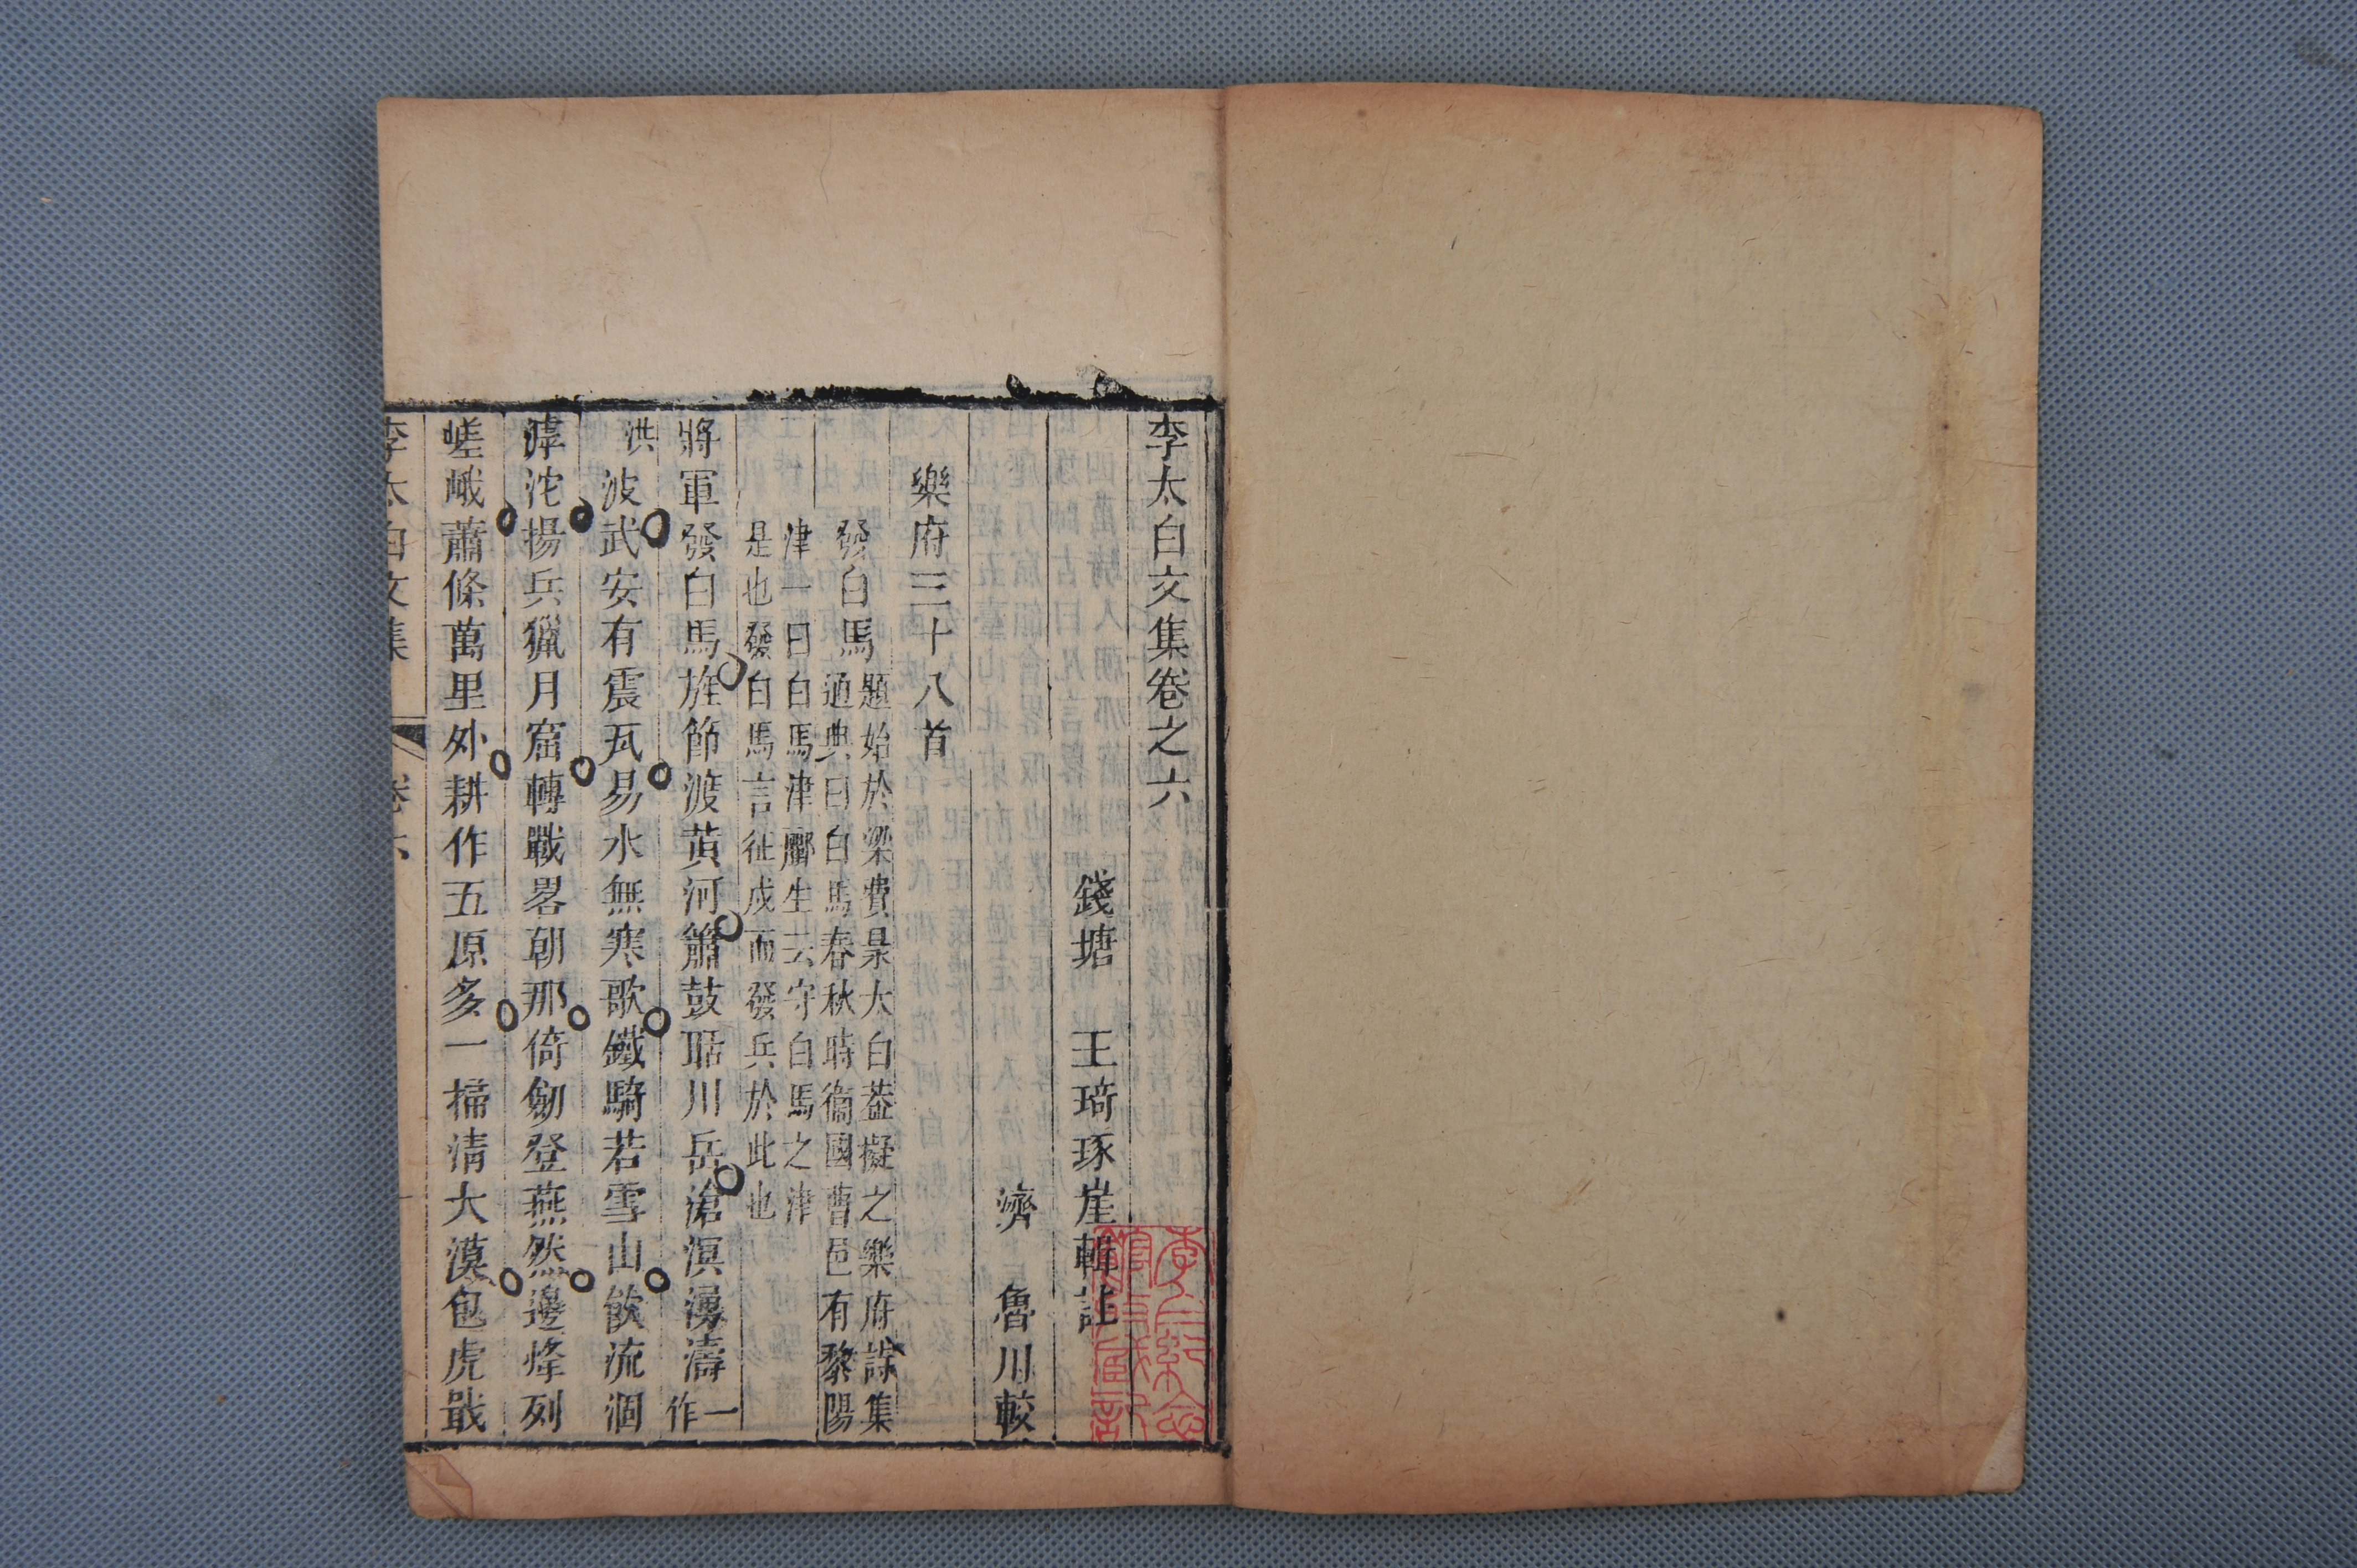 李太白文集卷之六
錢塘 王琦琢崖輯註
濟 魯川較
樂府三十八首
發白馬
題始於梁費昶太白蓋擬之樂府詩集
通典曰白馬春秋時衞國曹邑有黎陽
津一曰白馬津酈生云守白馬之津
是也發白馬言征戍而發兵於此也
將軍發白馬旌節渡黃河簫鼓聒川岳滄溟湧濤一作
洪波武安有震瓦易水無寒歌鐵騎若雪山飲流涸
滹沱揚兵獵月窟轉戰畧朝那倚劒登燕然邊烽列
嵯峨蕭條萬里外耕作五原多一掃清大漠包虎戢
李太白文集 卷六